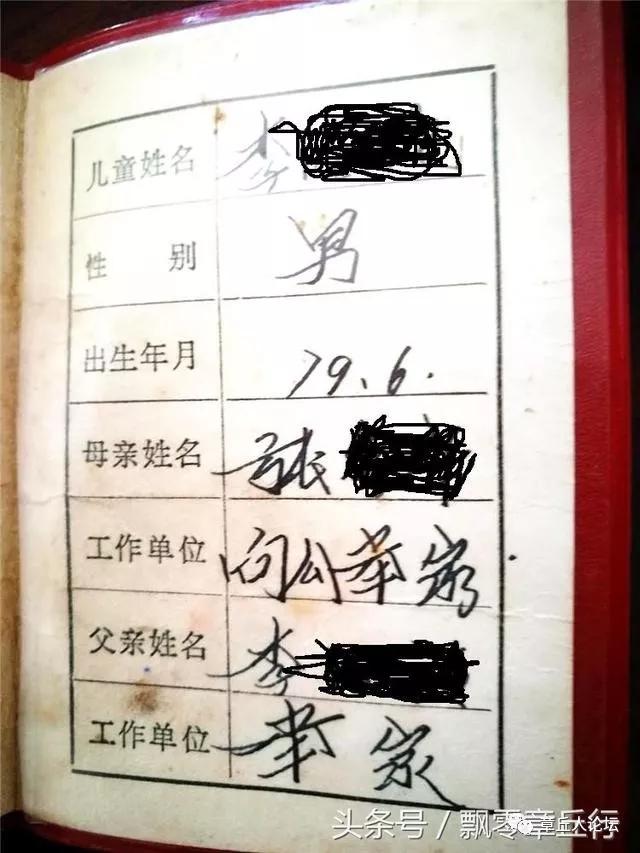 儿童姓名 李
性别 男
出生年月 79.6.
母亲姓名 张
工作单位 向公
父亲姓名 李
工作单位
头条号/飘零章丘行
章丘人论坛